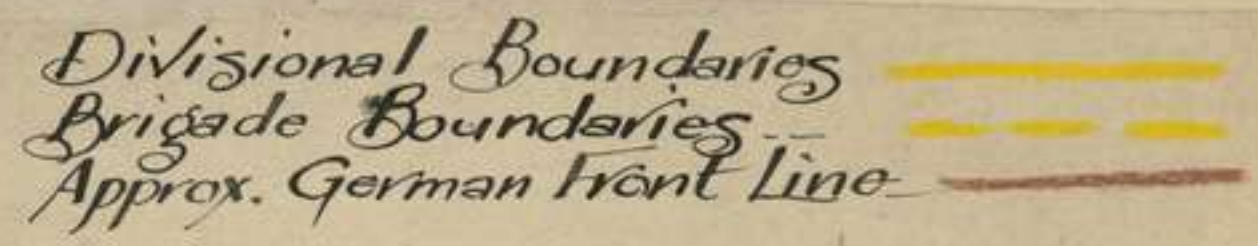 Divisional Boundaries
Brigade Boundaries
Approx. German Front Line